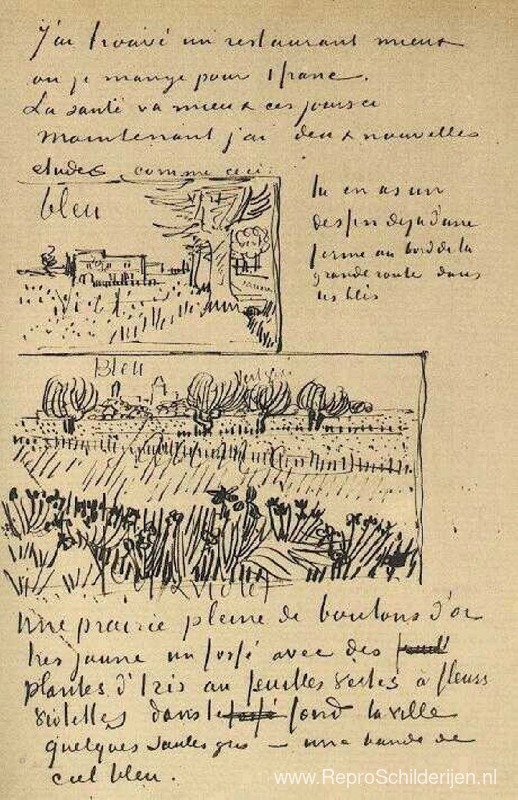 J'ai trouvé un restaurant mieux
ou je mange pour 1 franc.
La santé va mieux ces jours ci
Maintenant j'ai deux nouvelles
etudes comme ceci:
bleu
tu en as un
dessin deja d'une
ferme au bord de la
grande route dans
les blés
Bleu
Une prairie pleine de boutons d'or
tres jaune un fossé avec des
plantes d'Iris au feuilles vertes à fleurs
violettes dans le fossé fond la ville
quelques saules gris – une bande de
ciel bleu.
www.ReproSchilderijen.nl